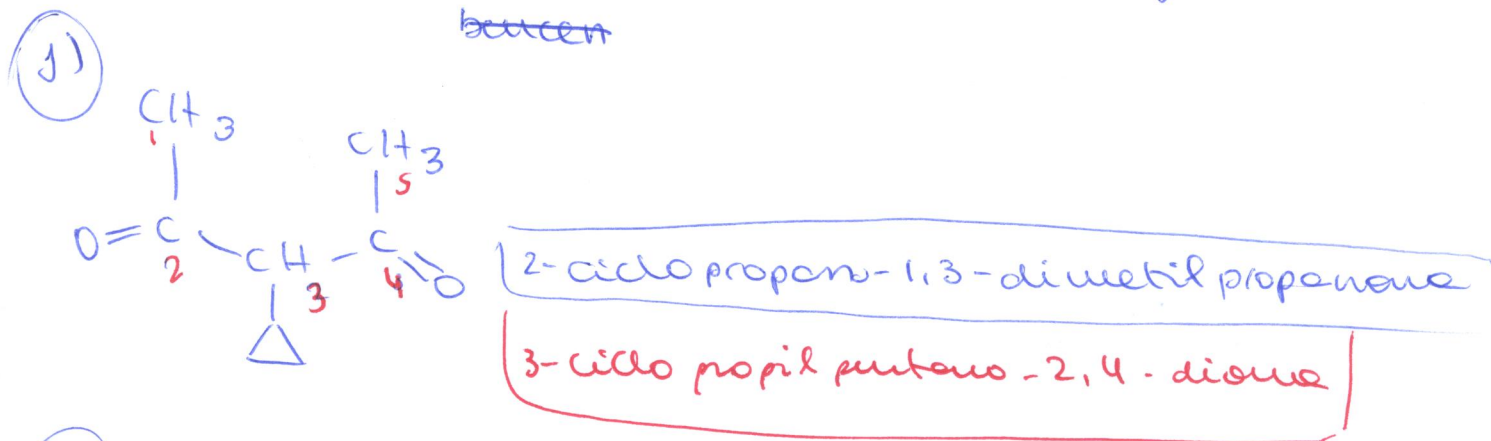 1)
CH3
1
CH3
5
O=C-CH-C=O
2 3 4
2-ciclopropano-1,3-dimetil propanona
3-ciclo propil pentano-2,4-diona